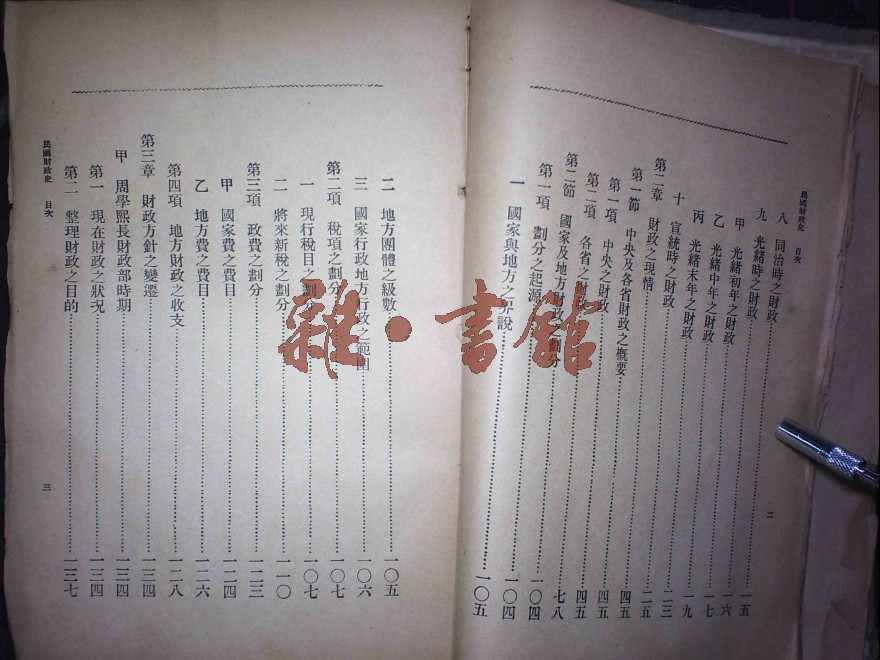 民國財政史 目次
八 同治時之財政 一五
九 光緒時之財政 一六
甲 光緒初年之財政 一六
乙 光緒中年之財政 一七
丙 光緒末年之財政 一九
十 宣統時之財政 二三
第二章 財政之現情 二五
第一節 中央及各省財政之概要 四五
第一項 中央之財政 四五
第二項 各省之財政 四五
第二節 國家及地方財政之劃分 七八
第一項 劃分之起源 一〇四
一 國家與地方之界說 一〇四
一〇五
二
二 地方團體之級數 一〇五
三 國家行政地方行政之範圍 一〇六
第二項 稅項之劃分 一〇七
一 現行稅目之劃分 一〇七
二 將來新稅之劃分 一一〇
第三項 政費之劃分 一二三
甲 國家費之費目 一二四
乙 地方費之費目 一二六
第四項 地方財政之收支 一二八
第三章 財政方針之變遷 一三四
甲 周學熙長財政部時期 一三四
第一 現在財政之狀況 一三四
第二 整理財政之目的 一三七
民國財政史 目次
三
雜·書館